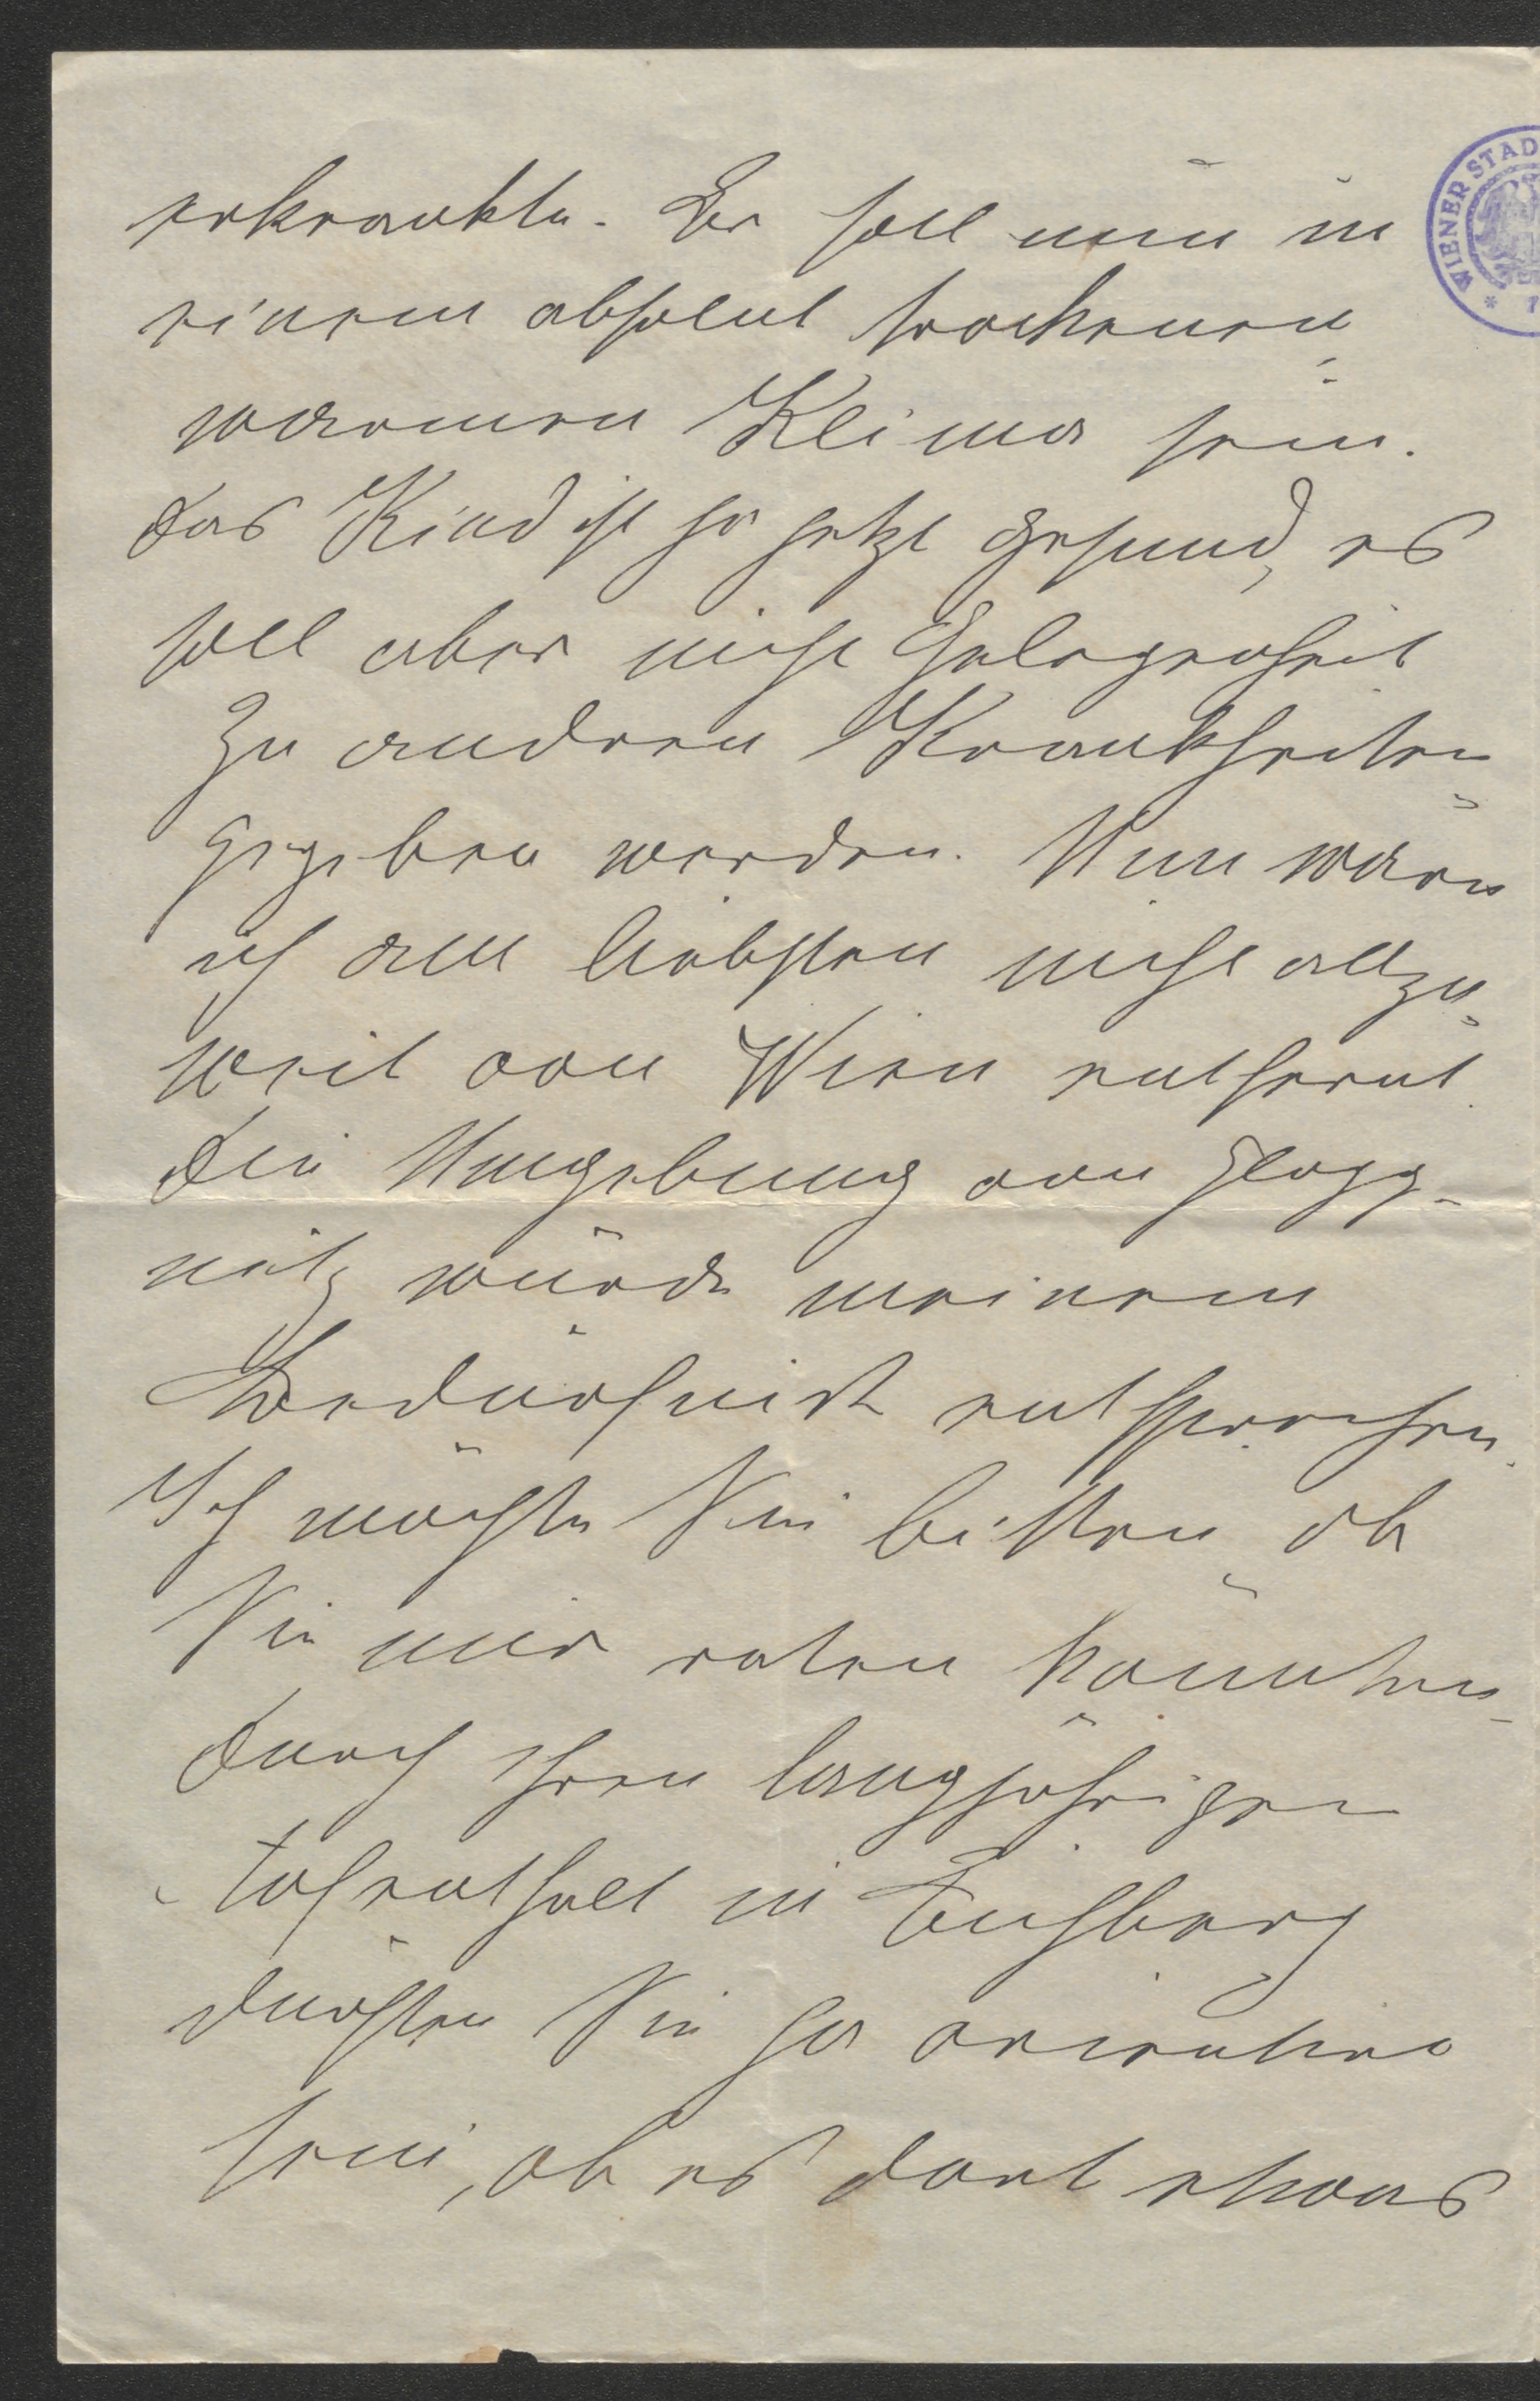 erkrankte. Er soll nun in
einem absolut trockenen
warmen Klima sein.
Das Kind ist ja jetzt gesund, es
soll aber nicht Gelegenheit
zu andren Krankheiten
gegeben werden. Nun wäre
ich am liebsten nicht allzu
weit von Wien entfernt.
Die Umgebung von Glogg-
nitz würde meinem
Bedürfniss entsprechen.
Ich möchte Sie bitten ob
Sie mir raten könnten
Durch Ihren langjährigen
Aufenthalt in Eichberg
dürften Sie ja orientiert
sein, ob es dort etwas
WIENER STAD